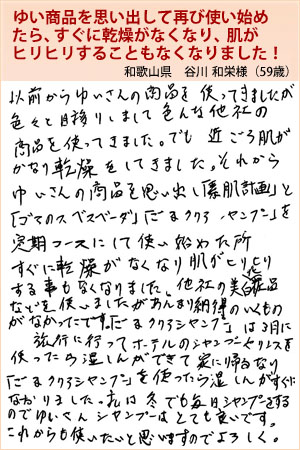 ゆい商品を思い出して再び使い始め
たら、すぐに乾燥がなくなり、肌が
ヒリヒリすることもなくなりました！
和歌山県 谷川 和栄様（59歳）
以前からゆいさんの商品を使ってきましたが
色々と目移りしまして色んな他社の
商品を使ってきました。でも 近ごろ肌が
かなり乾燥をしてきました。それから
ゆいさんの商品を思い出し「素肌計画」と
「ゴマのスベスベーダ」「ごまクロシャンプー」を
定期コースにして使い始めた所
すぐに乾燥がなくなり肌がヒリヒリ
する事もなくなりました。他社の美白化粧品
などを使いましたがあんまり納得のいくもの
がなかったです。「ごまクロシャンプー」は3月に
旅行に行ってホテルのシャンプーとリンスを
使ったら湿しんができて家に帰るなり
「ごまクロシャンプー」を使ったら湿しんがすぐに
なおりました。私は冬でも毎日シャンプーをする
のでゆいさんシャンプーはとても良いです。
これからも使いたいと思いますのでよろしく。